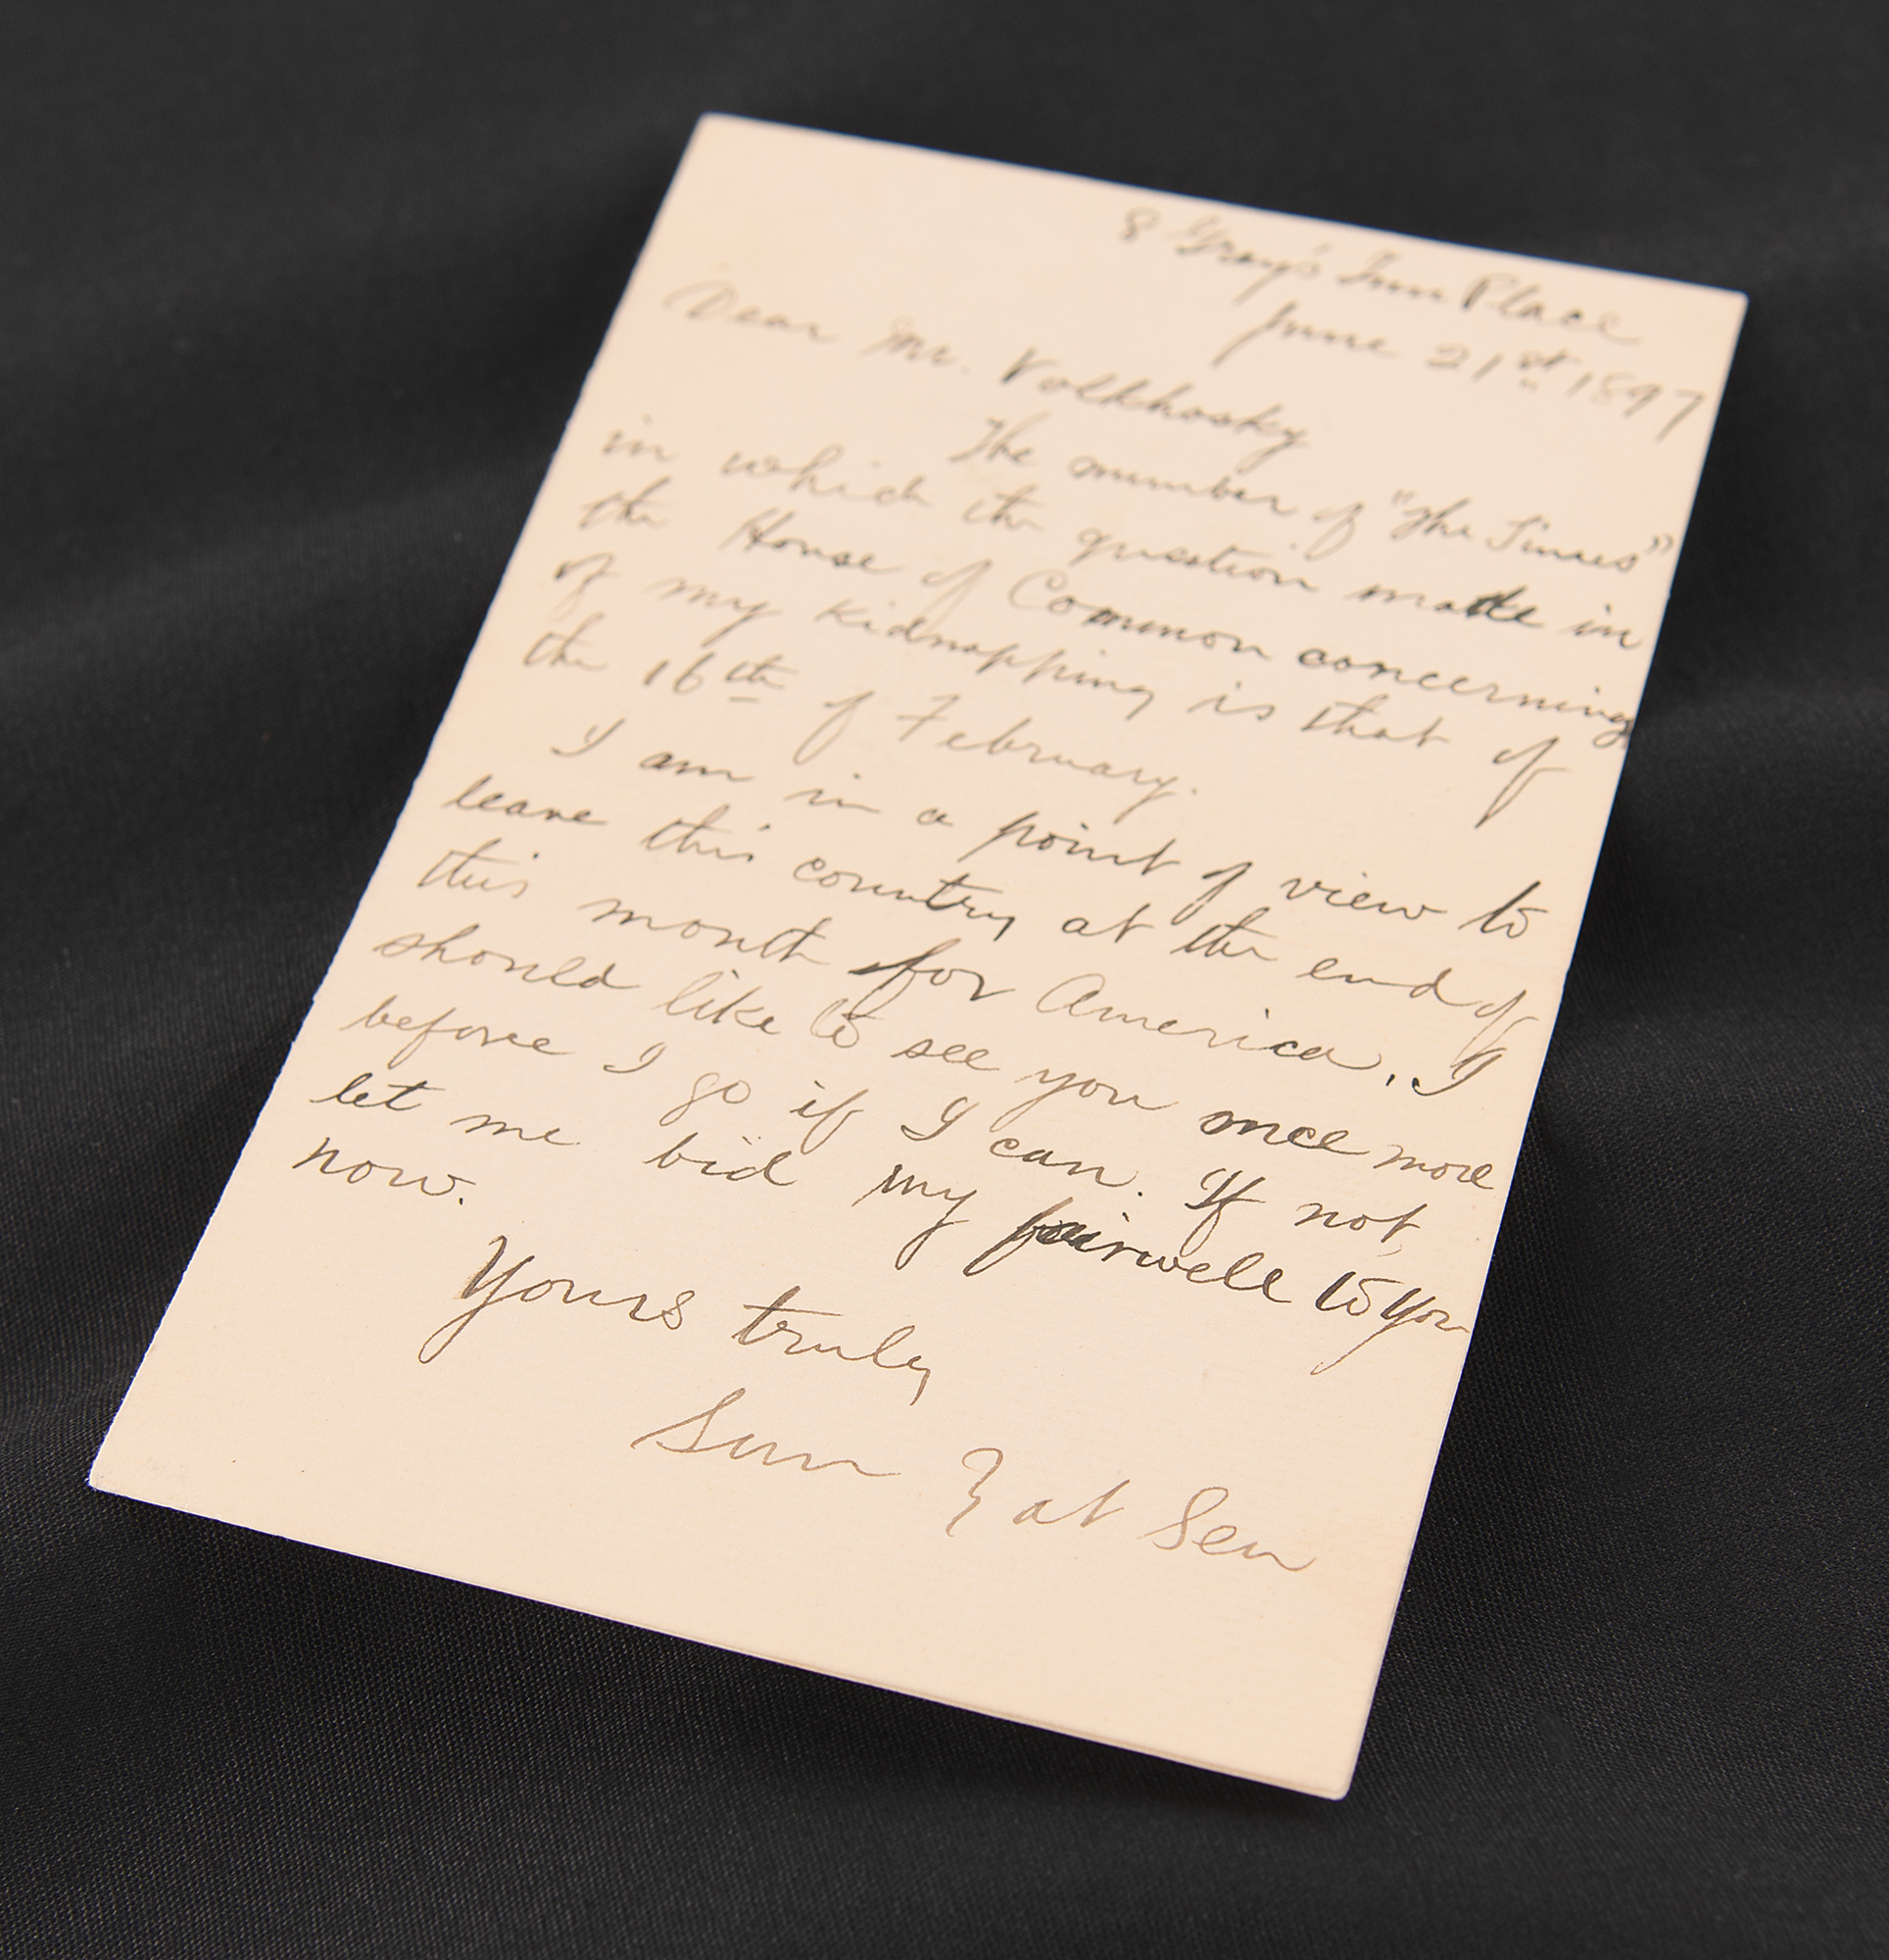 8 Gray's Inn Place
June 21st 1897
Dear Mr. Volkhosky
The number of "The Times"
in which the question made in
the House of Common concerning
of my kidnapping is that of
the 16th of February.
I am in a point of view to
leave this country at the end of
this month for America. I
should like to see you once more
before I go if I can. If not
let me bid my fairwell to you
now.
Yours truly
Sun Yat Sen